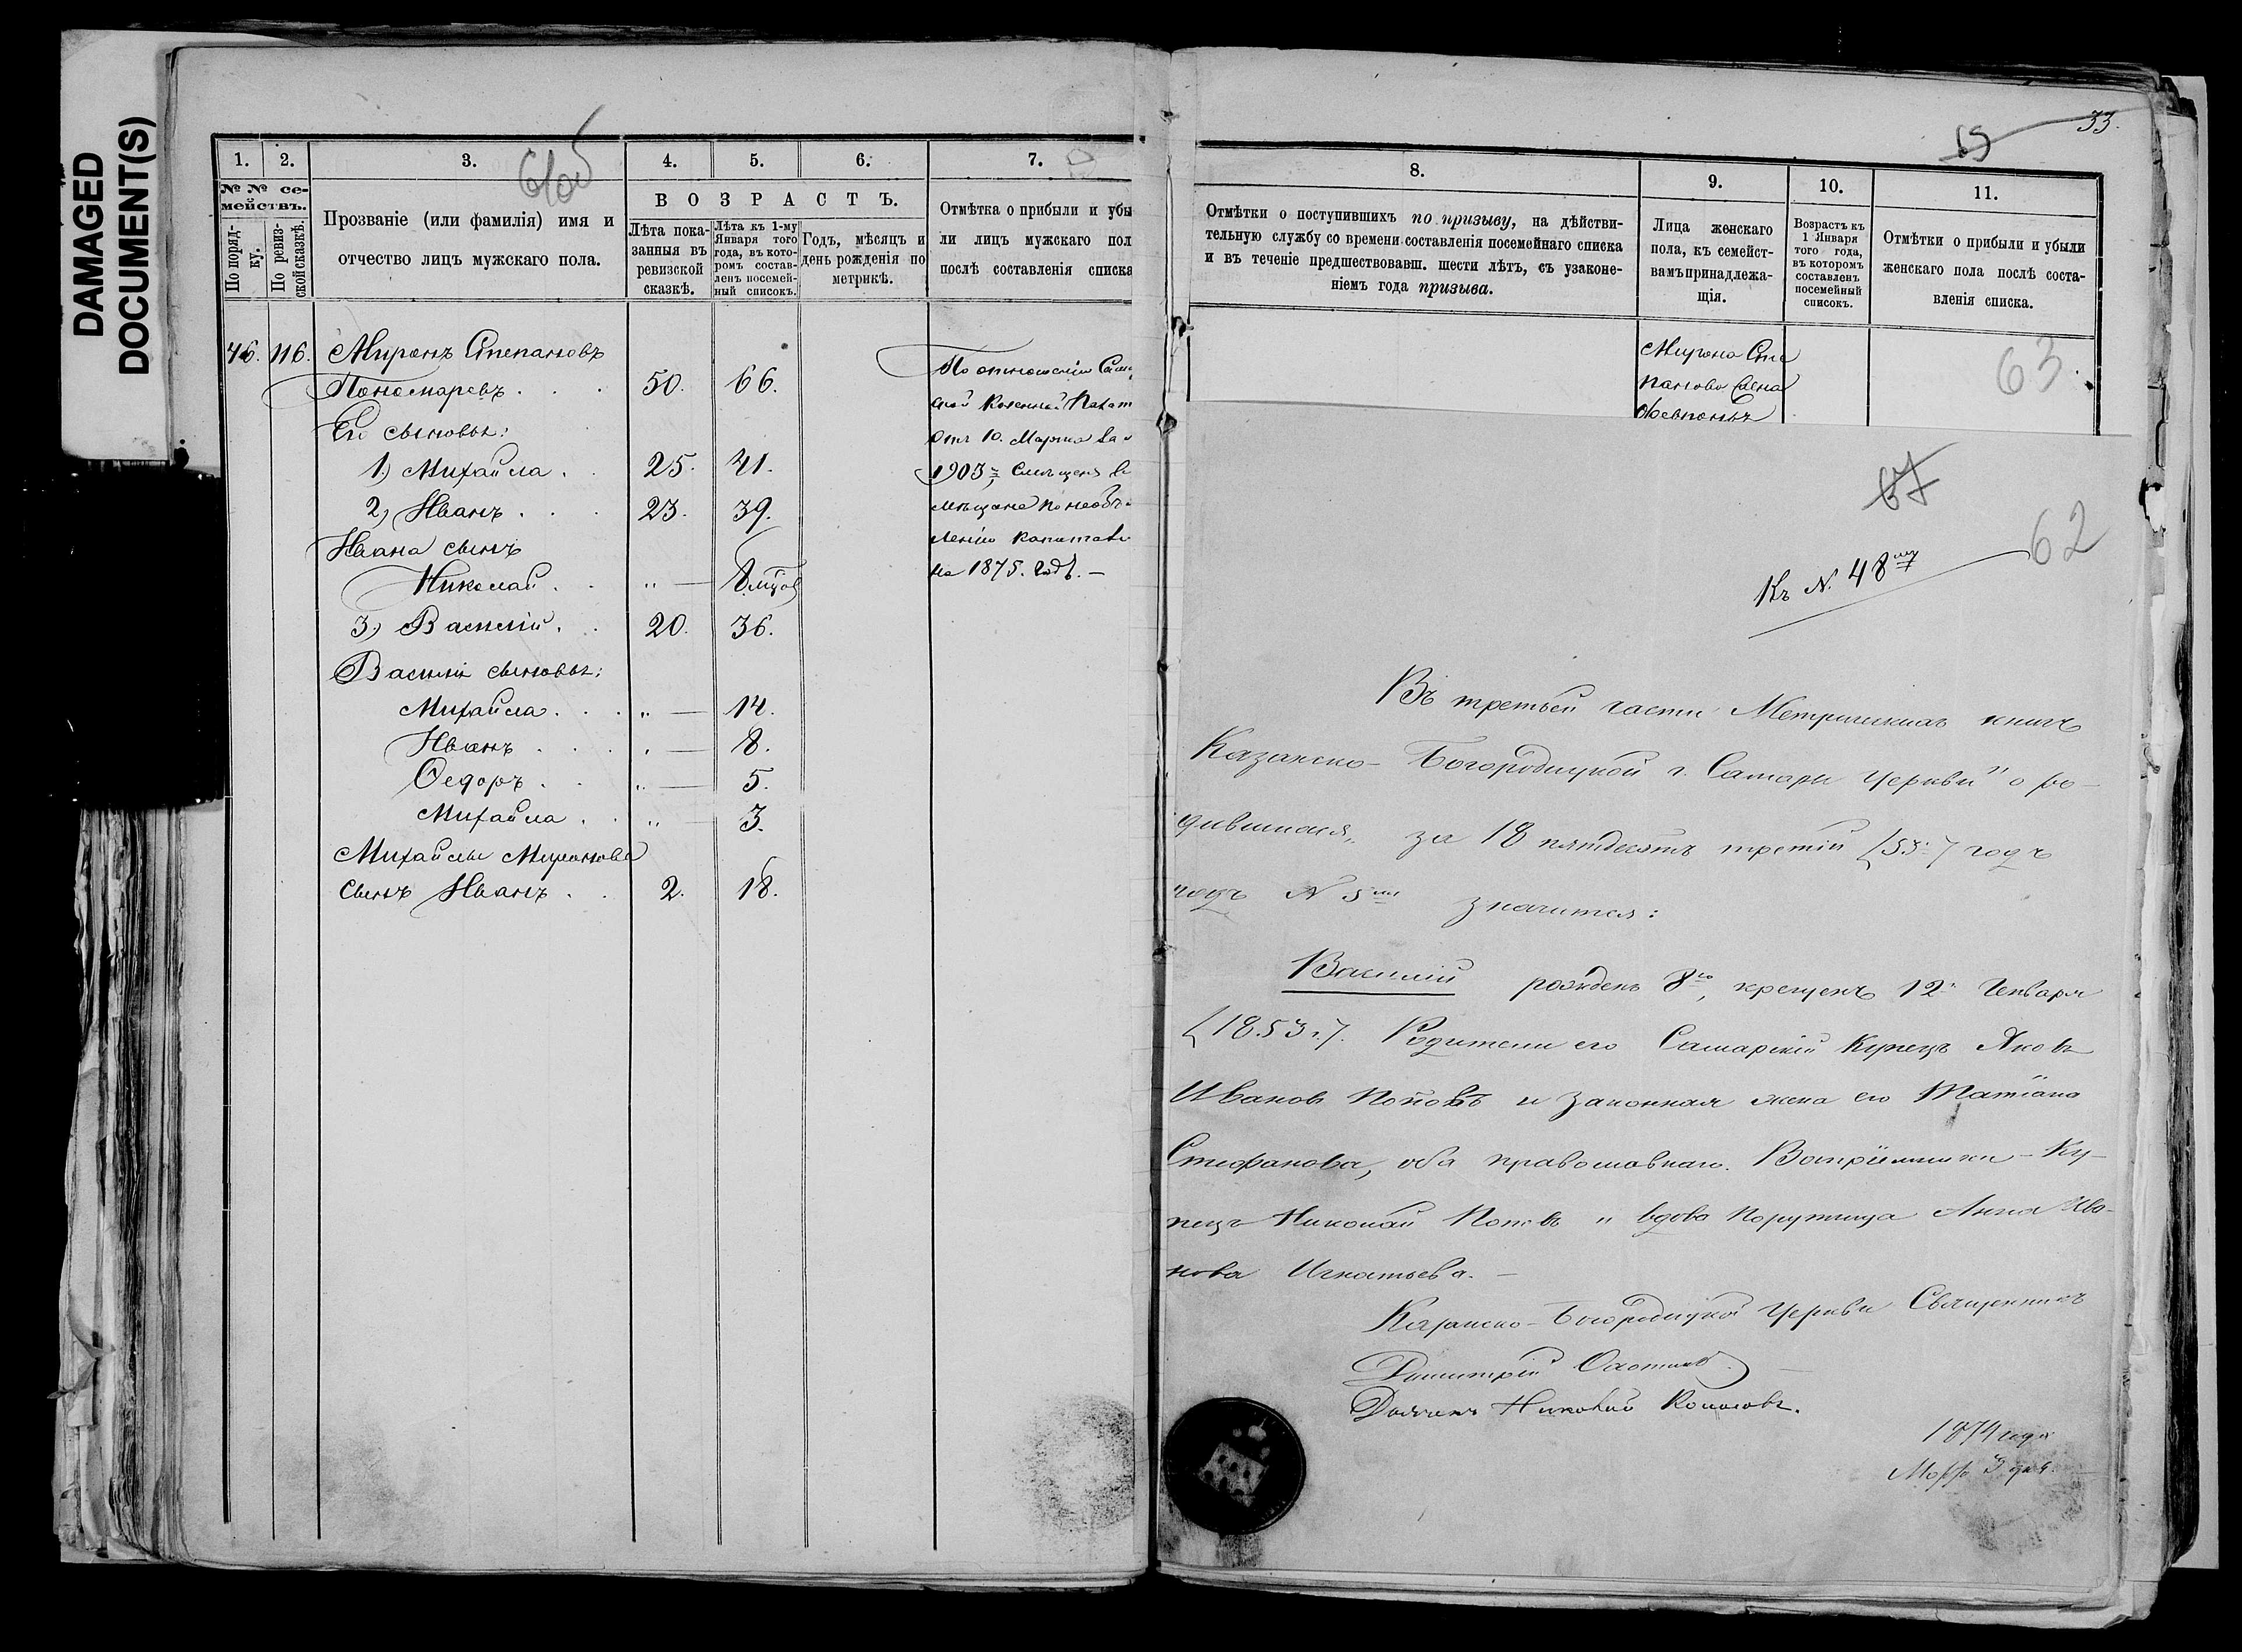 DAMAGED
DOCUMENT(S)
61об
1. 2. 3. 4. 5. 6. 7.
№ № се-
мействъ.
По поряд-
ку.
По ревиз-
ской сказкѣ.
Прозваніе (или фамилія) имя и
отчество лицъ мужскаго пола.
ВОЗРАСТЪ.
Лѣта пока-
занныя въ
ревизской
сказкѣ.
Лѣта къ 1-му
Января того
года, въ кото-
ромъ состав-
ленъ посемей-
ный списокъ.
Годъ, мѣсяцъ и
день рожденія по
метрикѣ.
Отмѣтка о прибыли и убы
ли лицъ мужскаго пол
послѣ составленія списка
46. 116. Миронъ Степановъ
Пономаревъ . . . 50. 66.
Его сыновья:
1) Михайла . . 25. 41.
2) Иванъ . . . 23. 39.
Ивана сынъ
Николай . . „ — 8 мцов
3) Василій . . 20. 36.
Василія сыновья:
Михайла . . . „ — 14.
Иванъ . . . . „ — 8.
Ѳедоръ . . . „ — 5.
Михайла . . „ — 3.
Михайлы Миронова
сынъ Иванъ . . 2. 18.
По отношенію Сам
ской Казенной Палат
отъ 10. Марта за №
1903, Смѣщенъ въ
мѣщане по необъ
леню капитала
на 1875. годъ. —
33.
65
8. 9. 10. 11.
Отмѣтки о поступившихъ по призыву, на дѣйстви-
тельную службу со времени составленія посемейнаго списка
и въ теченіе предшествовавш. шести лѣтъ, съ узаконе-
ніемъ года призыва.
Лица женскаго
пола, къ семейст-
вамъ принадлежа-
щія.
Возрастъ къ
1 Января
того года,
въ которомъ
составленъ
посемейный
списокъ.
Отмѣтки о прибыли и убыли
женскаго пола послѣ соста-
вленія списка.
Мирона Сте
панова жена
63.
67
62
Къ N. 48му
Въ третьей части Метрическихъ книгъ
Казанско-Богородицкой г. Самары церкви „о ро-
дившихся„ за 18 пятдесятъ третій [53.] годъ
подъ N 5мъ значится:
Василій рожденъ 8го, крещенъ 12го Генваря
[1853.]. Родители его Самарскій Купецъ Яковъ
Ивановъ Поповъ и законная жена его Татіана
Стефанова, оба православнаго. Воспріемники – Ку-
пецъ Николай Поповъ и вдова Порутчица Анна Ива-
нова Игнатьева. —
Казанско-Богородицкой Церкви Священникъ
Димитрій
Діаконъ Николай
1874 года
Марта 3 дня.